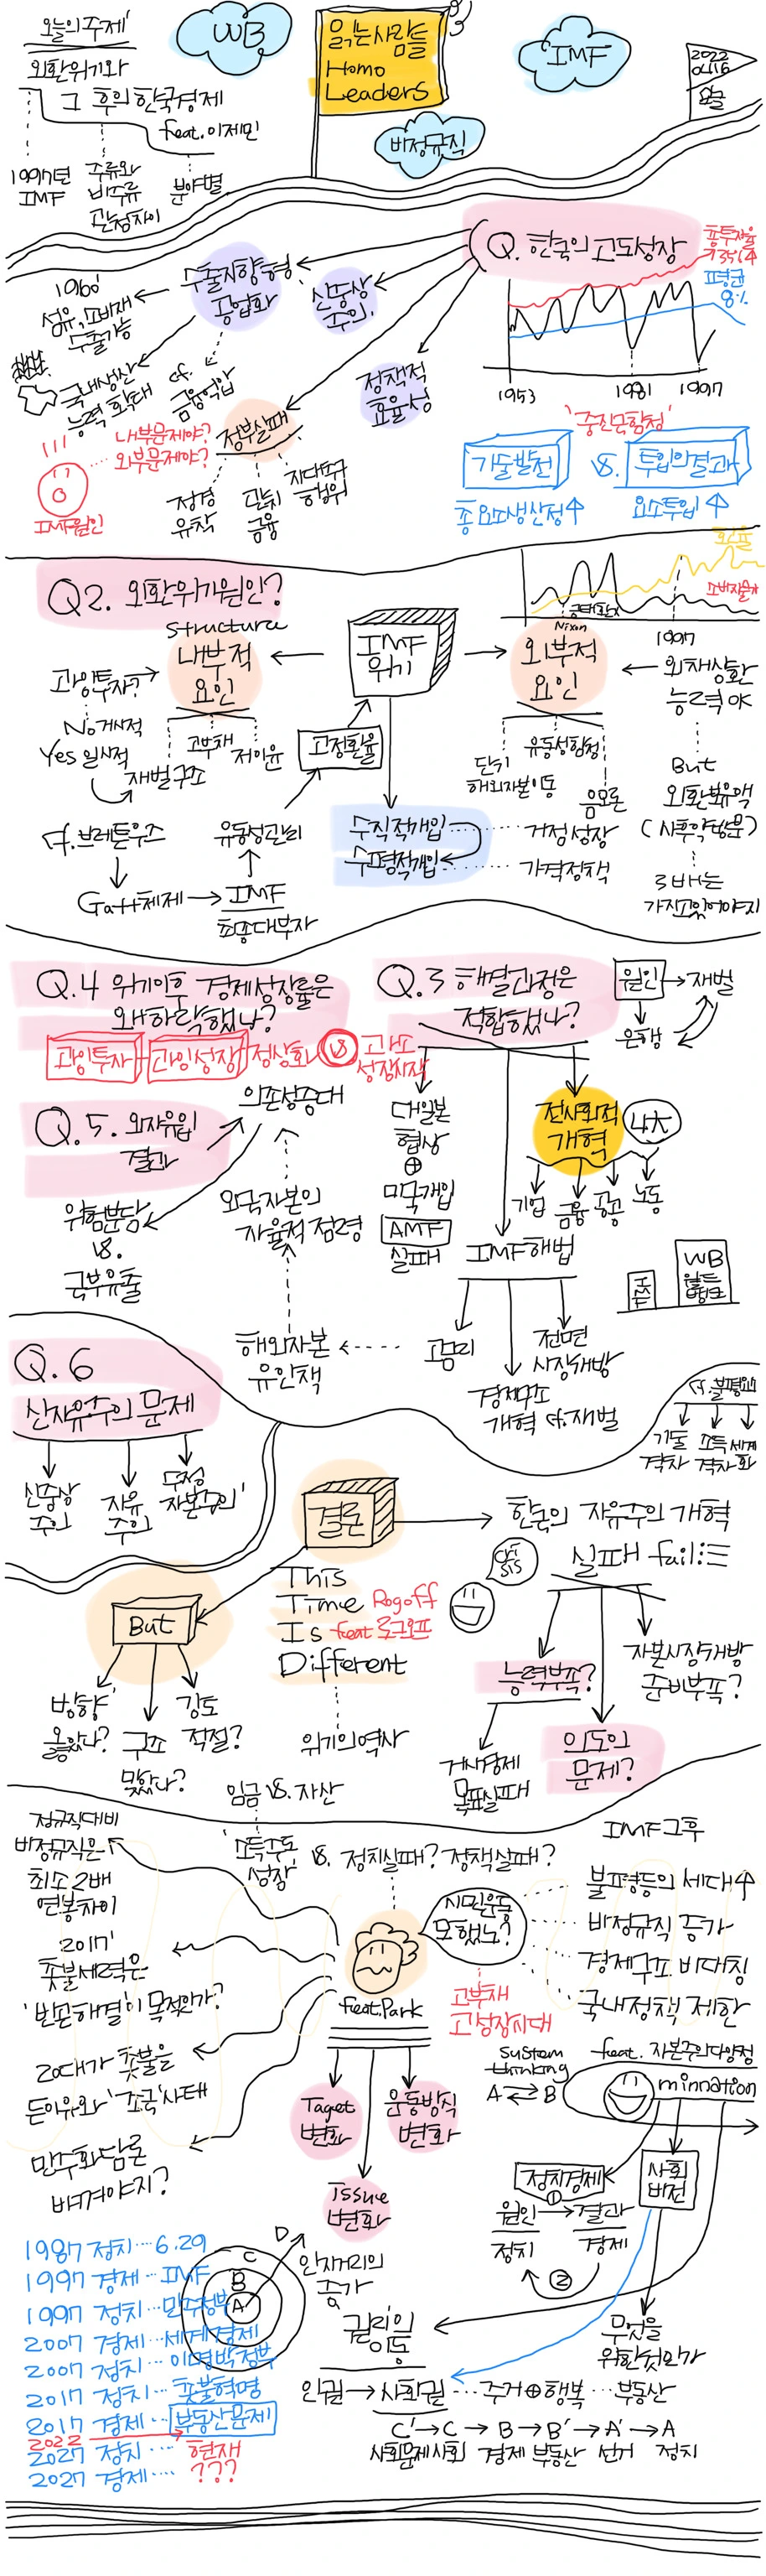 오늘의 주제
외환위기와
그 후의 한국경제
feat. 이제민
1997년
IMF
주류와
비주류
관점차이
분야별
WB
읽는사람들
Homo
Leaders
IMF
비정규직
2022
04.16
모글
Q. 한국의 고도성장
총투자율
35%↑
평균
8%
1953
1981
1997
수출지향형
공업화
신중상
주의
정책적
효율성
정부실패
정경
유착
관치
금융
지대추구
행위
1960'
섬유, 소비재
수출가능
국내생산
능력 확대
cf.
금융억압
내부문제야?
외부문제야?
IMF원인
'중진국함정'
기술발전
vs.
투입의결과
총요소생산성↑
요소투입↑
Q2. 외환위기원인?
structure
내부적
요인
과잉투자?
No 거시적
Yes 미시적
재벌구조
고부채
저이윤
IMF
위기
고정환율
외부적
요인
단기
해외자본이동
유동성함정
음모론
환율
소비자물가
금태환X
Nixon
1997
외채상환
능력 야
But
외환보유액
(사후약방문)
3배는
가지고있어야지
cf. 브레튼우즈
Gatt체제 → IMF
최종대부자
유동성관리
수직적개입
수평적개입
거점성장
가격정책
Q.4 위기이후 경제성장률은
왜하락했나?
과잉투자
과잉성장
정상화
vs
과소
성장시작
Q.3 해결과정은
적합했나?
원인 → 재벌
은행
대일본
협상
⊕
미국개입
AMF
실패
전사회적
개혁
4大
기업
금융
공공
노동
IMF해법
고금리
경제구조
개혁 cf. 재벌
전면
시장개방
IMF
WB
월드
뱅크
Q.5. 외자유입
결과
의존성증대
위험분담
vs.
국부유출
외국자본의
자율적 점령
해외자본
유인책
Q.6
신자유주의 문제
신중상
주의
자유
주의
두정
자본주의'
cf. 불평등
기술
격차
소득
격차
세계
화
결론
한국의 자유주의 개혁
실패 fail
cri
sis
This
Time
Is
Different
Rogoff
feat 로그오프
위기의역사
But
방향
옳았나?
구조
맞았나?
강도
적절?
능력부족?
거시경제
목표실패
의도의
문제?
자본시장개방
준비부족?
임금 vs. 자산
'소득주도
성장'
vs. 정치실패? 정책실패?
시민운동
뭐했노?
feat.Park
고부채
고성장시대
IMF그후
불평등의 세대↑
비정규직 증가
경제구조 비대칭
국내정책 제한
정규직대비
비정규직은
최소 2배
연봉차이
2017'
촛불세력은
'반촌해결'이 목적인가?
20대가 촛불을
든이유와 '조국'사태
민주화담론
바껴야지?
Taget
변화
Issue
변화
운동방식
변화
system
thinking
A ⇄ B
feat. 자본주의다양성
minnation
정치경제
①
원인 → 결과
정치
경제
②
사회
비전
무엇을
위한것인가
1987 정치 … 6.29
1997 경제 … IMF
1997 정치 … 민주정부
2007 경제 … 세계경제
2007 정치 … 이명박정부
2017 정치 … 촛불혁명
2017 경제 … 부동산문제
2022
현재
2027 정치 … ???
2027 경제 …
A
B
C
D
인자거리의
증가
권리의
이동
인권 → 사회권 … 주거⊕행복 … 부동산
C' → C → B → B' → A' → A
사회문제 사회 경제 부동산 선거 정치